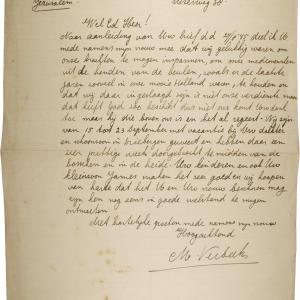 Jerusalem.
Wel Ed Heer!
Naar aanleiding van Uw brief d.d. 7/9 '45 deel ik U
mede namens mijn vrouw mee dat wij gelukkig waren om
onze krachten te mogen inspannen, om onze medemensen
uit de handen van de beulen, zooals er de laatste
jaren zooveel in ons mooie Holland waren, te houden en
dat wij daar in geslaagd zijn is niet onze verdienste maar
dat heeft God zoo beschikt dus niet ons komt eer
toe maar hij die boven ons is en het al regeert. Wij zijn
van 15 tot 23 September met vacantie bij Uw dochter
en schoonzoon in geweest en hebben daar een
prettige week doorgebracht te midden van de
bosschen en in de heide. Uw kinderen en ook Uw
kleinzoon James maken het goed en wij hopen
van harte dat het U en Uw vrouw bewaren mag
zijn hen nog eens in goede welstand te mogen
ontmoeten
Met hartelijke groeten mede namens mijn vrouw
Hoogachtend
M. Verbeek